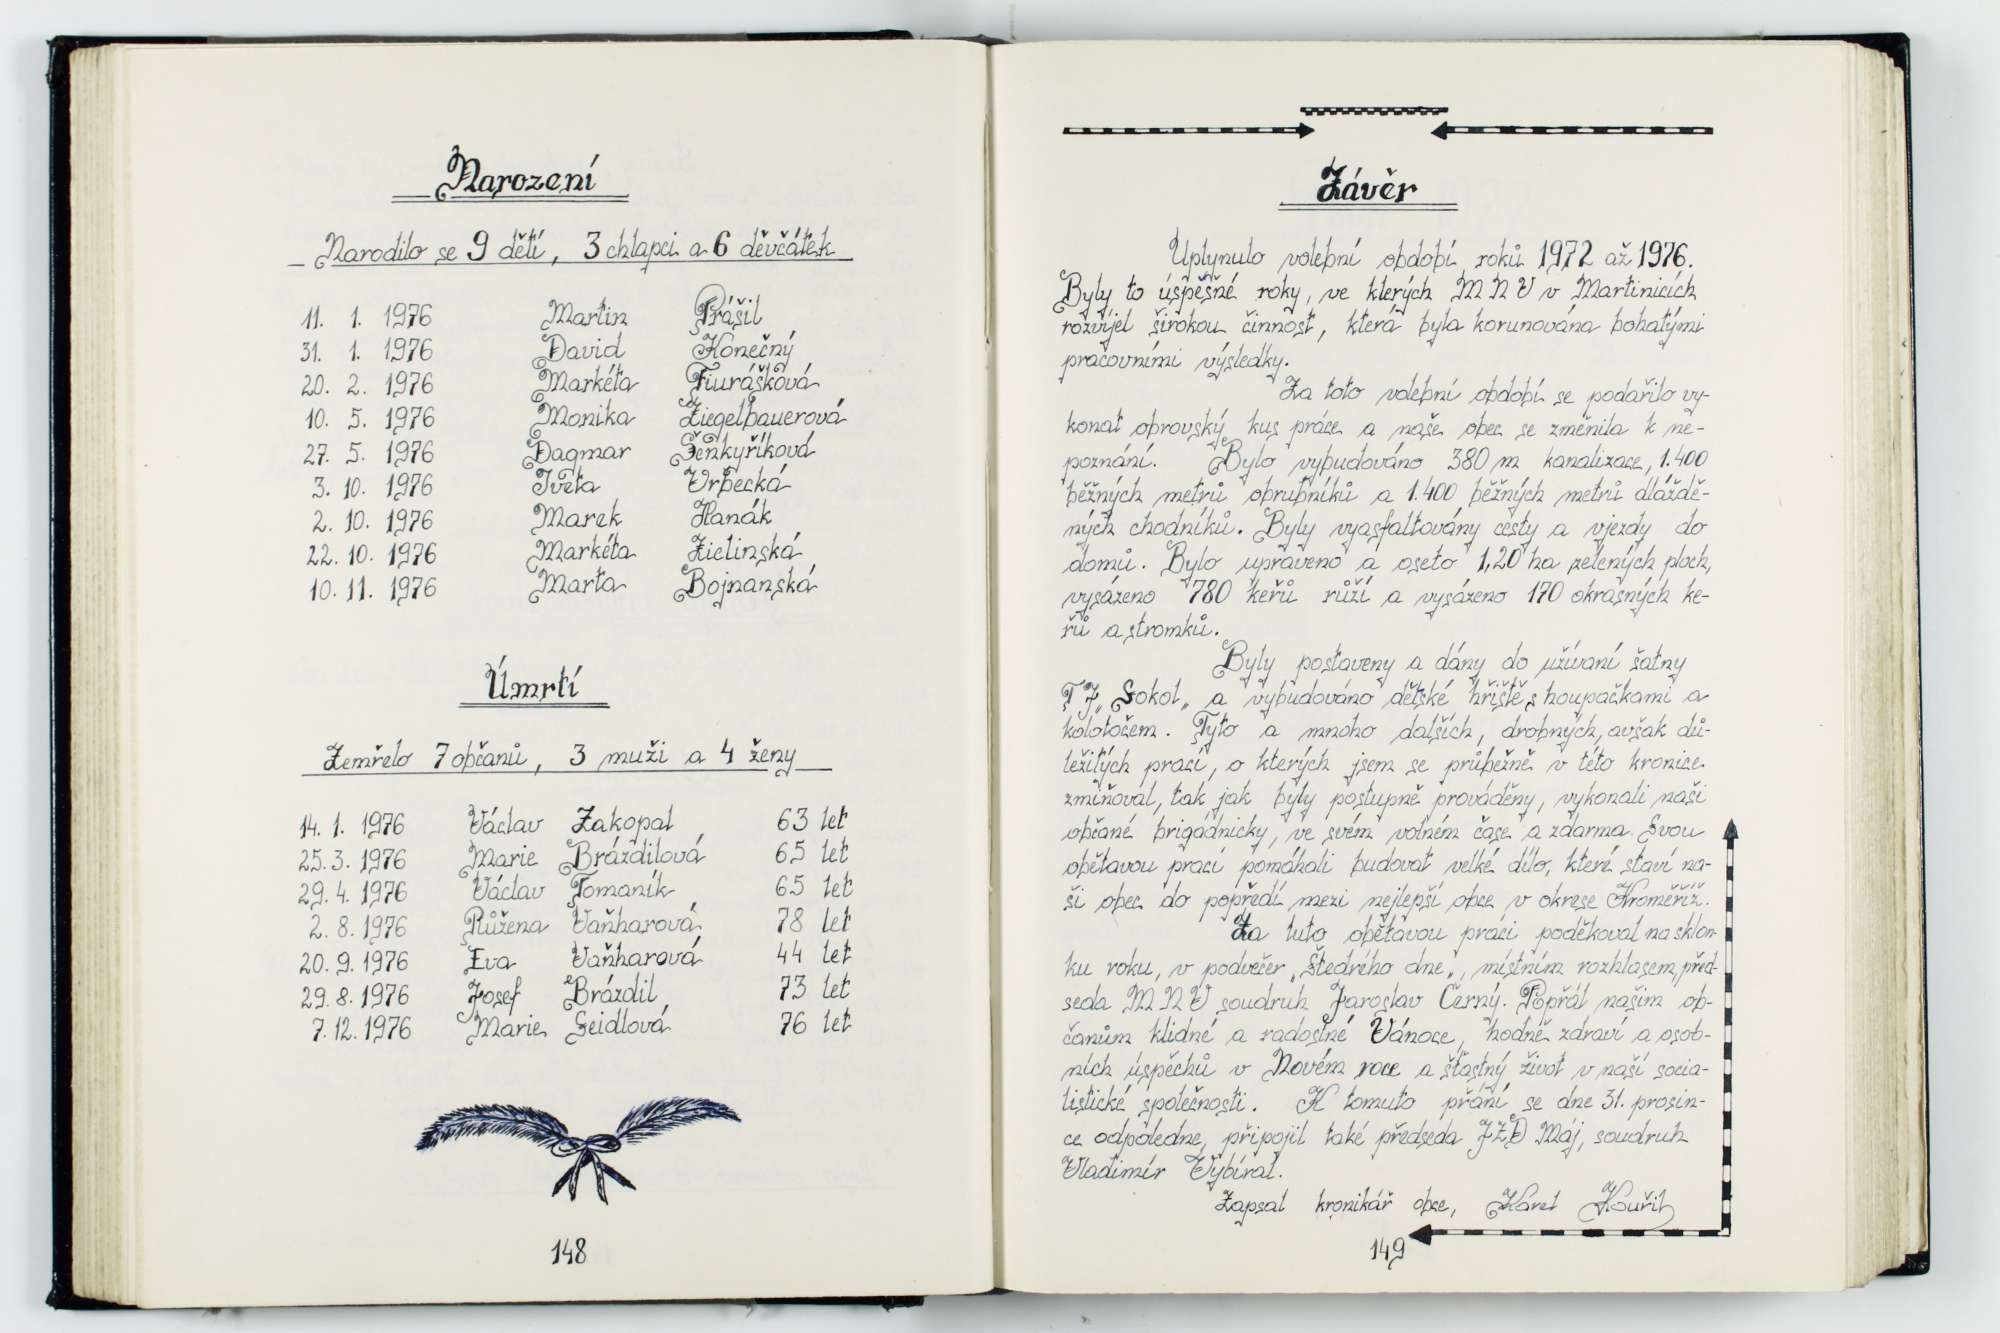 Narození
Narodilo se 9 dětí, 3 chlapci a 6 děvčátek
11. 1. 1976 Martin Prášil
31. 1. 1976 David Konečný
20. 2. 1976 Markéta Fiurášková
10. 5. 1976 Monika Ziegelbauerová
27. 5. 1976 Dagmar Šenkyříková
3. 10. 1976 Iveta Vrbecká
2. 10. 1976 Marek Hanák
22. 10. 1976 Markéta Zielinská
10. 11. 1976 Marta Bojnanská
Úmrtí
Zemřelo 7 občanů, 3 muži a 4 ženy
14. 1. 1976 Václav Zakopal 63 let
25. 3. 1976 Marie Brázdilová 65 let
29. 4. 1976 Václav Tomaník 65 let
2. 8. 1976 Růžena Vaňharová 78 let
20. 9. 1976 Eva Vaňharová 44 let
29. 8. 1976 Josef Brázdil 73 let
7. 12. 1976 Marie Seidlová 76 let
148
Závěr
Uplynulo volební období roků 1972 až 1976.
Byly to úspěšné roky, ve kterých MNV v Martinicích
rozvíjel širokou činnost, která byla korunována bohatými
pracovními výsledky.
Za toto volební období se podařilo vy-
konat obrovský kus práce a naše obec se změnila k ne-
poznání. Bylo vybudováno 380 m kanalizace, 1.400
běžných metrů obrubníků a 1.400 běžných metrů dláždě-
ných chodníků. Byly vyasfaltovány cesty a vjezdy do
domů. Bylo upraveno a oseto 1,20 ha zelených ploch,
vysázeno 780 keřů růží a vysázeno 170 okrasných ke-
řů a stromků.
Byly postaveny a dány do užívaní šatny
TJ „Sokol„ a vybudováno dětské hřiště s houpačkami a
kolotočem. Tyto a mnoho dalších, drobných, avšak dů-
ležitých prací, o kterých jsem se průběžně v této kronice
zmiňoval, tak jak byly postupně prováděny, vykonali naši
občané brigádnicky, ve svém volném čase a zdarma. Svou
obětavou prací pomáhali budovat velké dílo, které staví na-
ši obec do popředí mezi nejlepší obce v okrese Kroměříž.
Za tuto obětavou práci poděkoval na sklon-
ku roku, v podvečer „Štedrého dne„, místním rozhlasem, před-
seda MNV soudruh Jaroslav Černý. Popřál našim ob-
čanům klidné a radostné Vánoce, hodně zdraví a osob-
ních úspěchů v Novém roce a šťastný život v naší socia-
listické společnosti. K tomuto přání se dne 31. prosin-
ce odpoledne, připojil také předseda JZD Máj, soudruh
Vladimír Vybíral.
Zapsal kronikář obce, Karel Kouřil
149